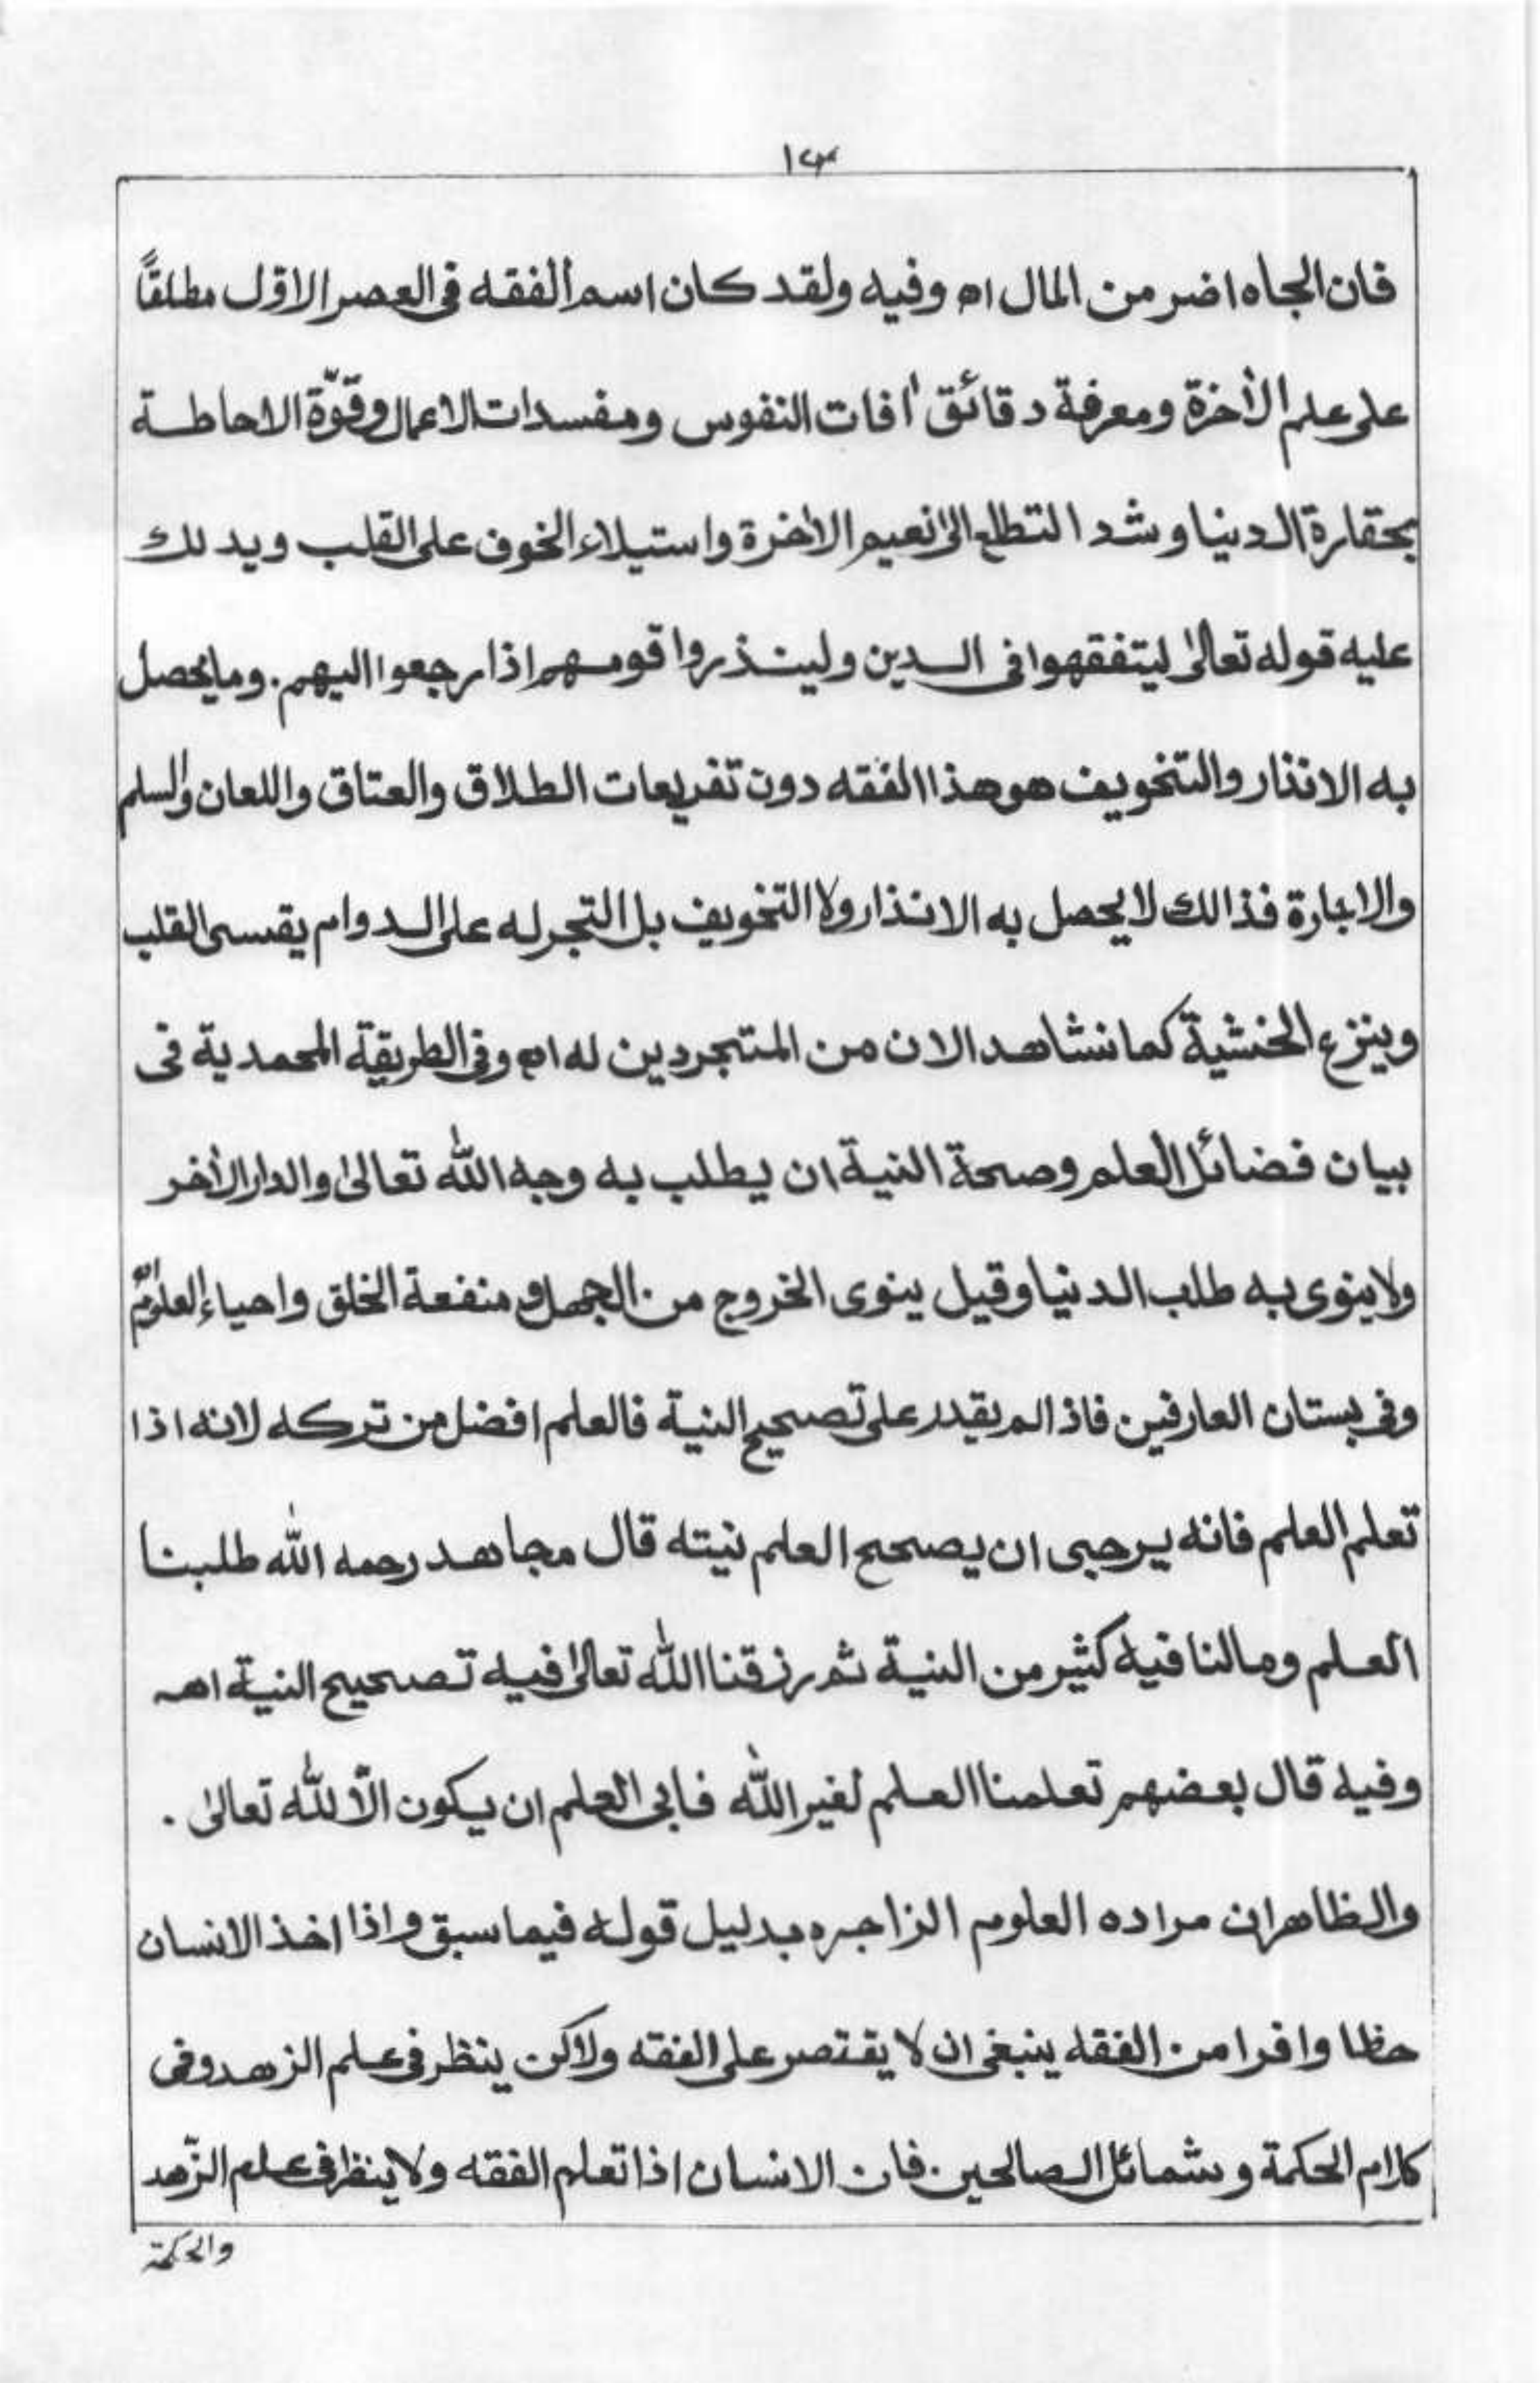 ١٣
فان الجاه اضر من المال اه وفيه ولقد كان اسم الفقه فى العصر الاوّل مطلقًا
على علم الأخرة ومعرفة دقائق أفات النفوس ومفسدات الاعمال وقوّة الاحاطة
بحقارة الدنيا وشد التطلع الى نعيم الأخرة واستيلاء الخوف على القلب ويدلك
عليه قوله تعالى ليتفقهوا فى الدين ولينذروا قومهم اذا رجعوا اليهم. وما يحصل
به الانذار والتخويف هو هذا الفقه دون تفريعات الطلاق والعتاق واللعان والسلم
والاجارة فذالك لا يحصل به الانذار ولا التخويف بل التجرله على الدوام يقسى القلب
وينزع الخشية كما نشاهد الان من المتجردين له اه وفى الطريقة المحمدية فى
بيان فضائل العلم وصحة النية ان يطلب به وجه الله تعالى والدار الأخر
ولا ينوى به طلب الدنيا وقيل ينوى الخروج من الجهل ومنفعة الخلق واحياء العلوم اه
وفى بستان العارفين فاذا لم يقدر على تصحيح النية فالعلم افضل من تركه لانه اذا
تعلم العلم فانه يرجى ان يصحح العلم نيته قال مجاهد رحمه الله طلبنا
العلم وما لنا فيه كثير من النية ثم رزقنا الله تعالى فيه تصحيح النية اهـ
وفيه قال بعضهم تعلمنا العلم لغير الله فابى العلم ان يكون الّا لله تعالى .
والظاهر ان مراده العلوم الزاجره بدليل قوله فيما سبق واذا اخذ الانسان
حظا وافرا من الفقه ينبغى ان لا يقتصر على الفقه ولاكن ينظر فى علم الزهد وفى
كلام الحكمة وشمائل الصالحين. فان الانسان اذا تعلم الفقه ولا ينظر فى علم الزّهد
والحكمة